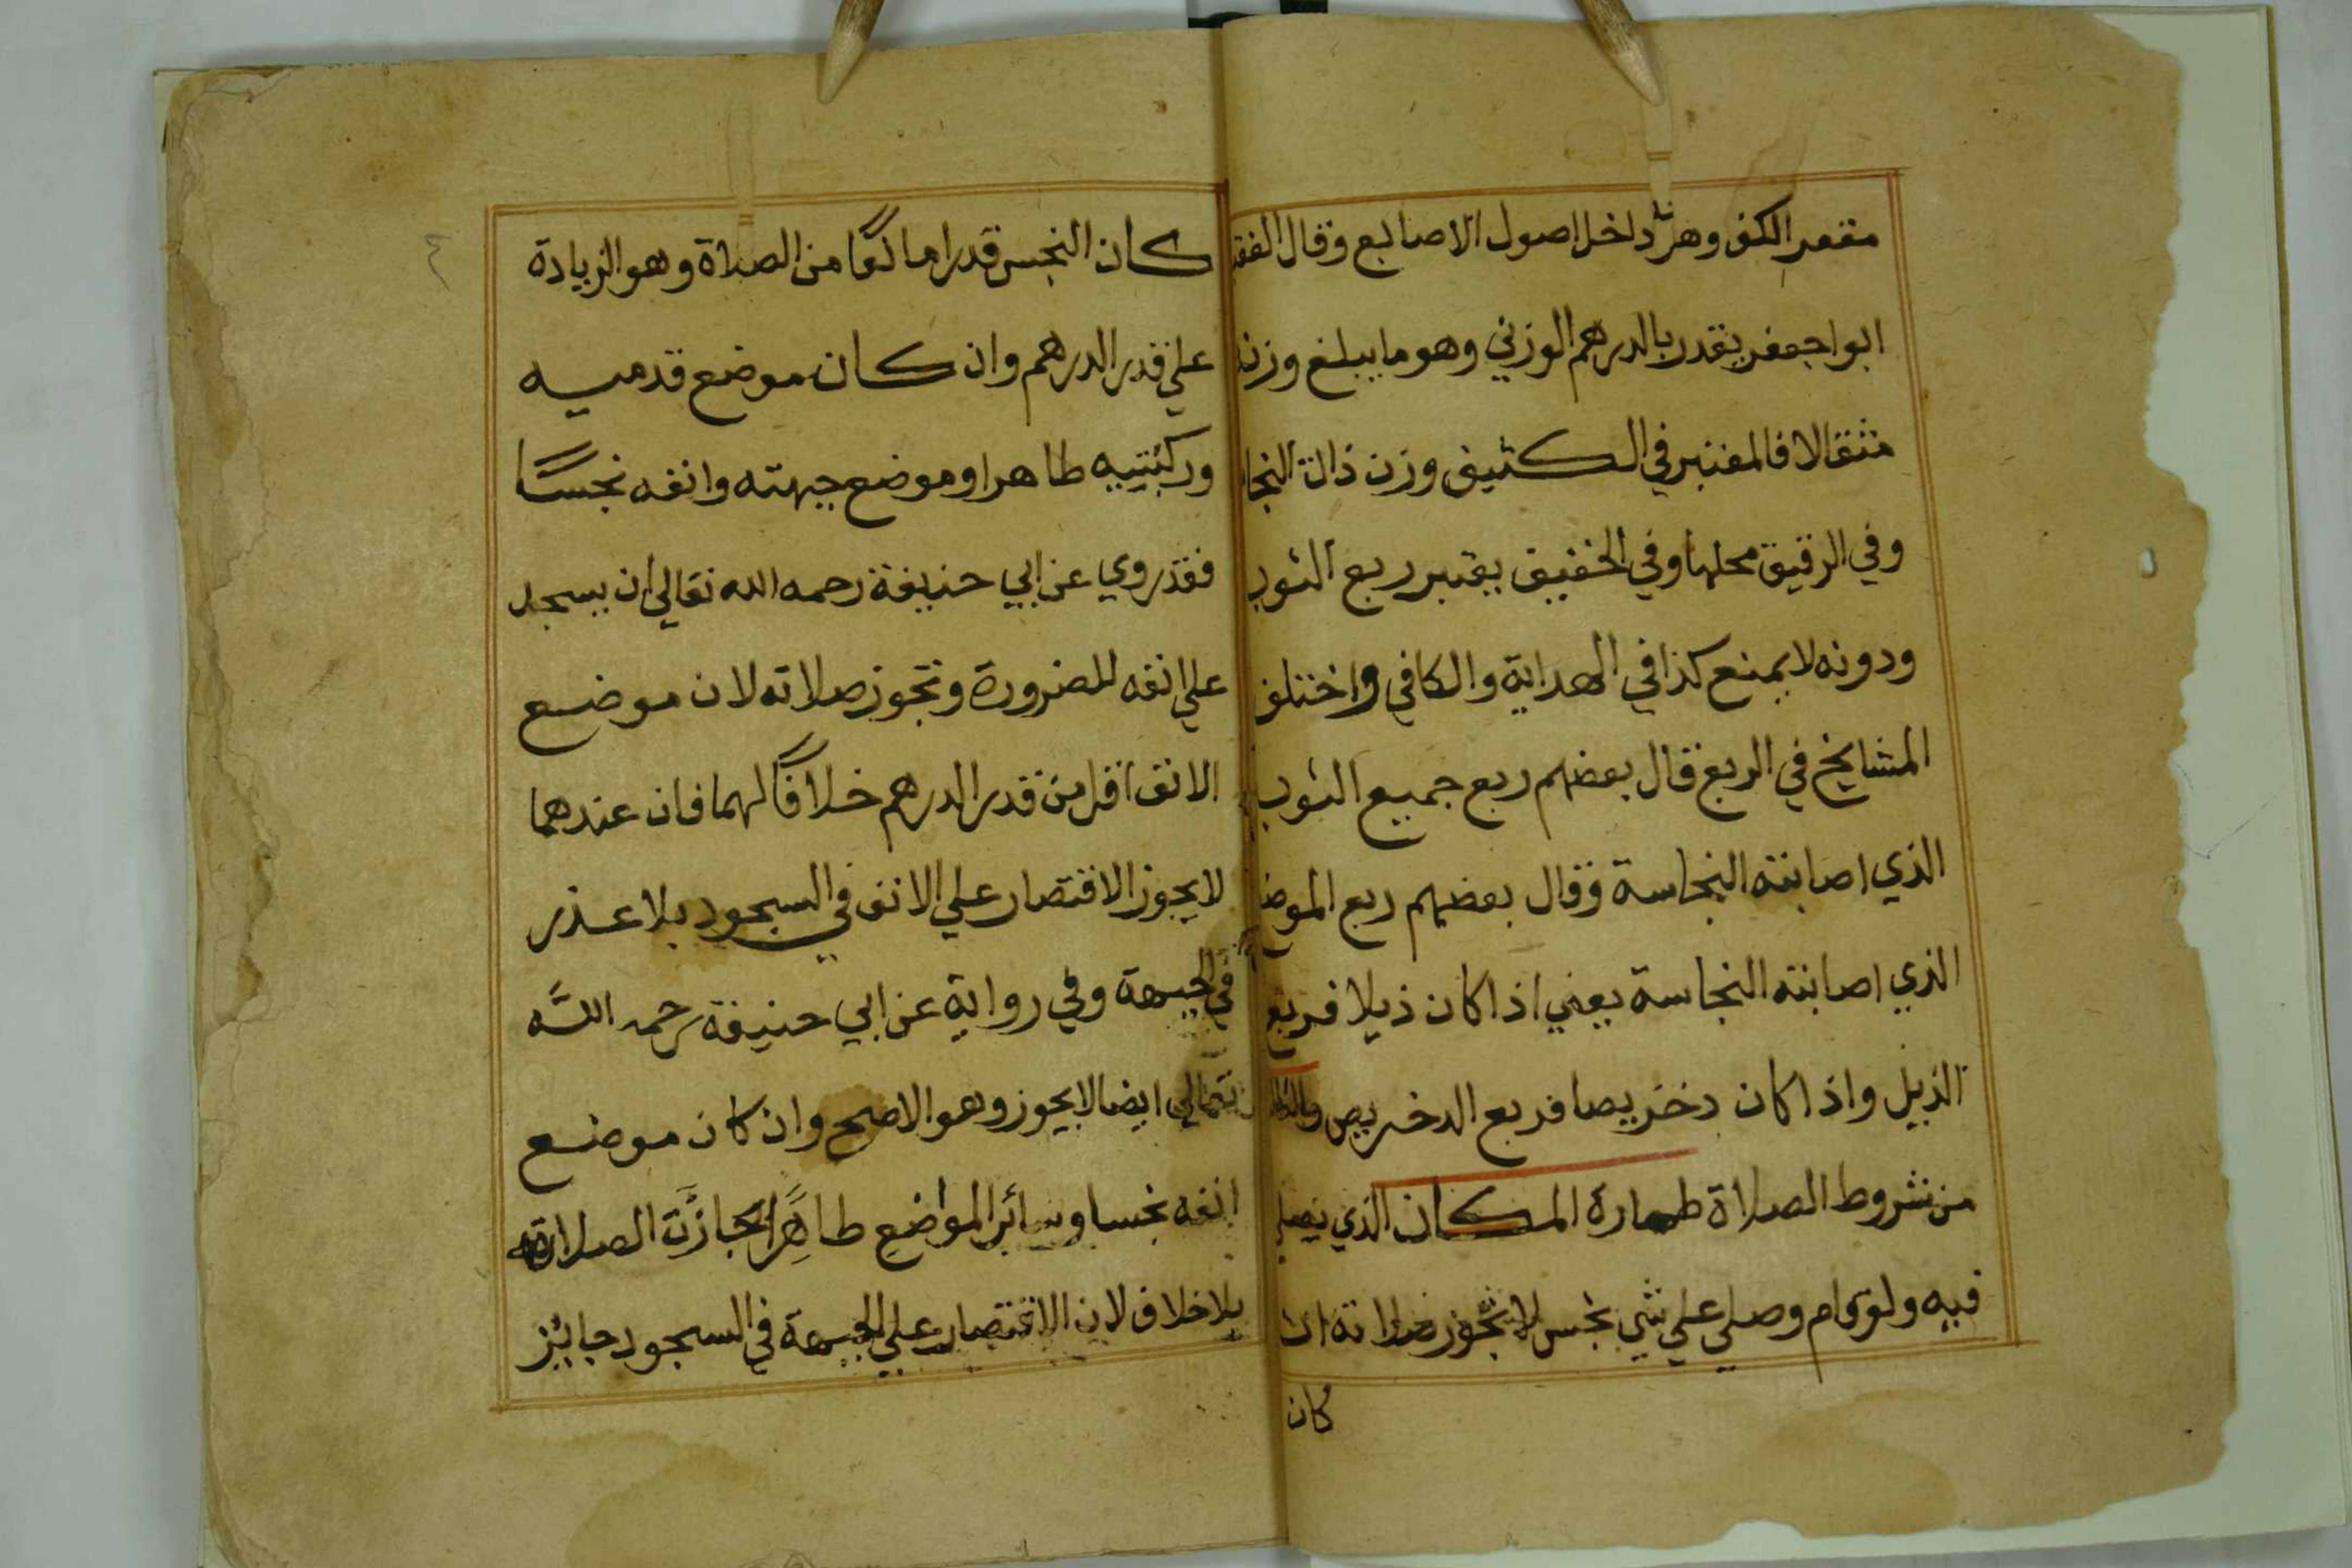 مقعر الكف وهو داخل اصول الاصابع وقال الفقيه
ابوا جعفر يقدر بالدرهم الوزني وهو ما يبلغ وزنه
مثقالا فالمعتبر في الكثيف وزن ذلك النجا
وفي الرقيق محلها وفي الخفيف يعتبر ربع الثوب
ودونه لا يمنع كذا في الهداية والكافي واختلف
المشايخ في الربع قال بعضهم ربع جميع الثوب
الذي اصابته النجاسة وقال بعضهم ربع الموضع
الذي اصابته النجاسة يعني اذا كان ذيلا فربع
الذيل واذا كان دخريصا فربع الدخريص والثالث
من شروط الصلاة طهارة المكان الذي يصلي
فيه ولو قام وصلى على شي نجس لا تجوز صلاته ان
كان
٤
كان النجس قدرا مانعًا من الصلاة وهو الزيادة
علي قدر الدرهم وان كان موضع قدميه
وركبتيه طاهرا وموضع جبهته وانفه نجسًا
فقد روي عن ابي حنيفة رحمه الله تعالي ان يسجد
علي انفه للضرورة وتجوز صلاته لان موضع
الانف اقل من قدر الدرهم خلافًا لهما فان عندهما
لا يجوز الاقتصار علي الانف في السجود بلا عذر
في الجبهة وفي رواية عن ابي حنيفة رحمه اللّه
تعالي ايضا لا يجوز وهو الاصح وان كان موضع
انفه نجسا وسائر المواضع طاهِرًا جازَت الصلاة
بلا خلاف لان الاقتصار علي الجبهة في السجود جائز